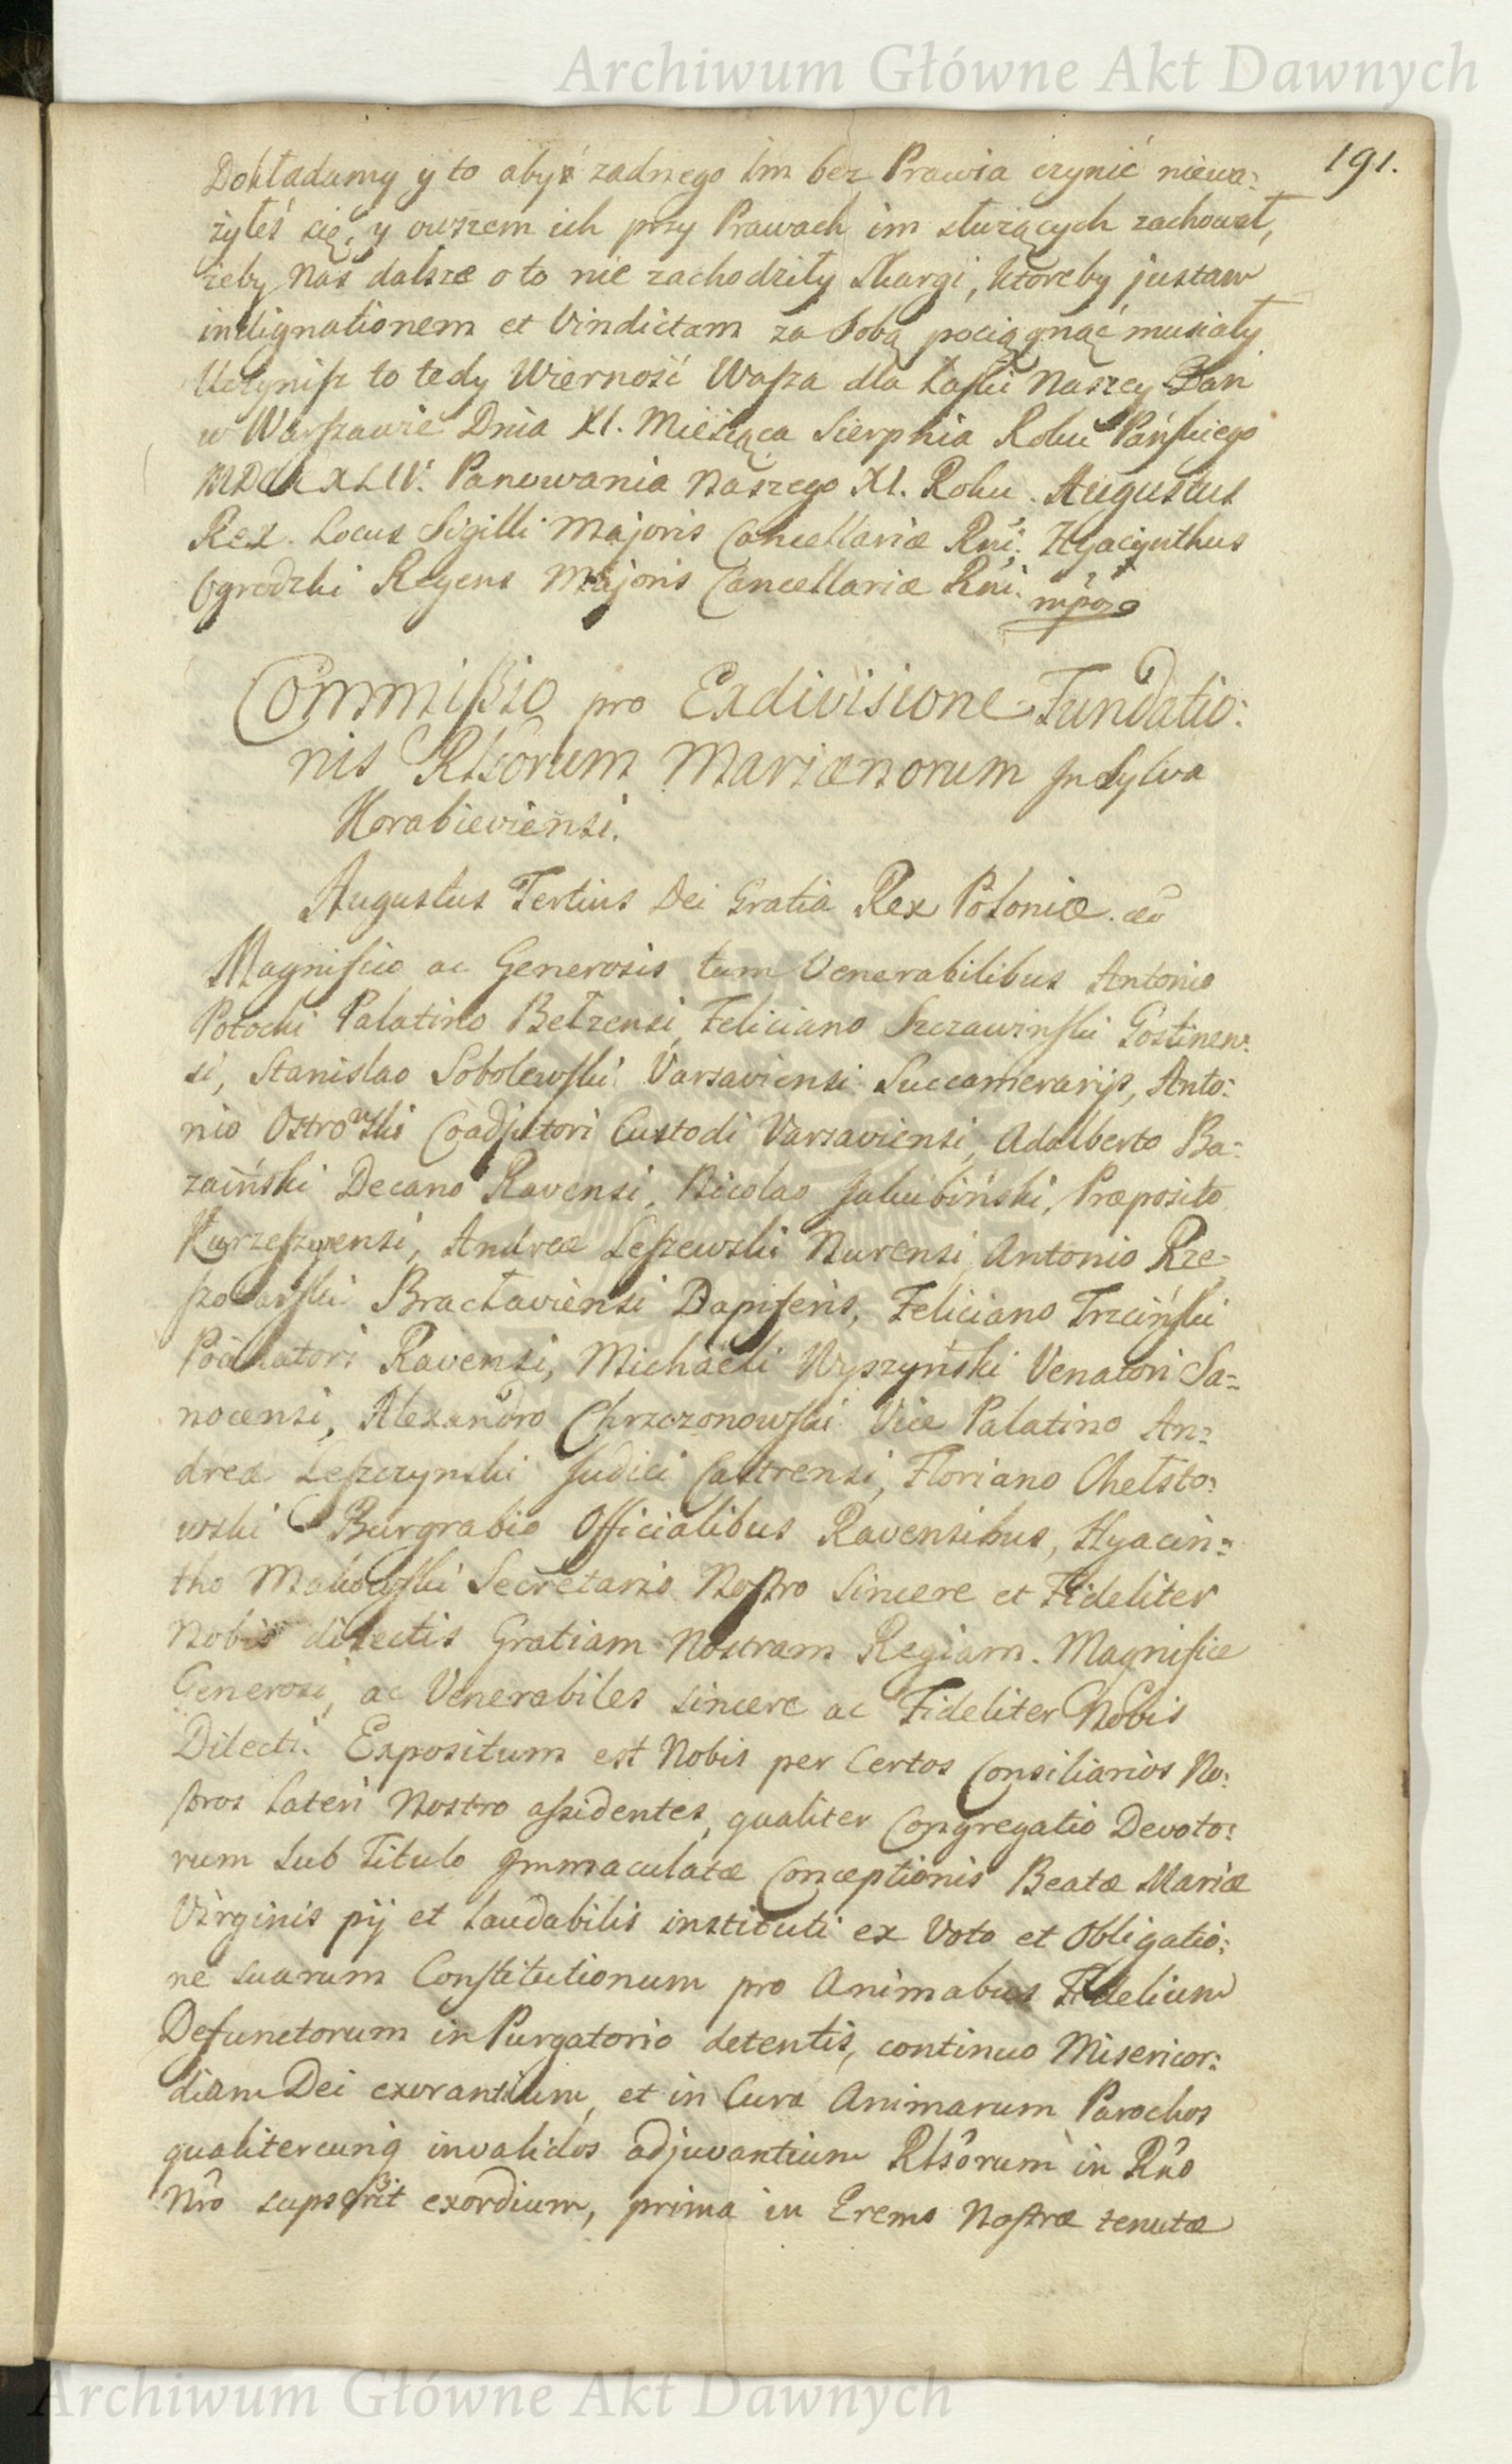 Archiwum Główne Akt Dawnych
191.
Dokładamy y to abyś zadnego Im bez Prawia czynić niewa:
żyłeś się, y owszem ich przy Prawach im służących zachował,
żeby Nas dalsze o to nie zachodziły Skargi, ktoreby justam
indignationem et Vindictam za Sobą pociągnąć musiały
Uczynisz to tedy Wierność Wasza dla Łaski Naszey Dan
w Warszawie Dnia XI. Miesiąca Sierpnia Roku Pańskiego
MDCCXLIV. Panowania Naszego XI. Roku. Augustus
Rex. Locus Sigilli Majoris Cancellariæ Rni. Hyacynthus
Ogrodzki Regens Majoris Cancellariæ Rni. mpo
Commissio pro Exdivisione Fundatio:
nis Rlsorum Marianorum In Sylva
Korabieviensi.
Augustus Tertius Dei Gratia Rex Poloniæ.
Magnifico ac Generosis tum Venerabilibus Antonio
Potocki Palatino Bełzensi, Feliciano Szczawinski Gostinen:
si, Stanislao Sobolewski Varsaviensi Succamerarijs, Anto:
nio Ostrowski Coadjutori Custodi Varsaviensi, Adalberto Ba:
zaiński Decano Ravensi, Nicolao Jakubiński, Præposito
Kurzeszynensi, Andreæ Leszewski Nurensi, Antonio Rze:
szotarski Bracłaviensi Dapiferis, Feliciano Trzciński
Pocillatori Ravensi, Michaeli Wyszyński Venatori Sa:
nocensi, Alexandro Chrzczonowski Vice Palatino An:
dreæ Leszczynski Judici Castrensi, Floriano Chełsto:
wski Burgrabio Officialibus Ravensibus, Hyacin:
tho Makowski Secretario Nostro Sincere et Fideliter
Nobis dilectis Gratiam Nostram Regiam. Magnifice
Generosi, ac Venerabiles sincere ac Fideliter Nobis
Dilecti. Expositum est Nobis per Certos Consiliarios No:
stros Lateri Nostro assidentes, qualiter Congregatio Devoto:
rum Sub Titulo Immaculatæ Conceptionis Beatæ Mariæ
Virginis pij et laudabilis instituti ex Voto et Obligatio:
ne suarum Constitutionum pro Animabus Fidelium
Defunctorum in Purgatorio detentis, continuo Misericor:
diam Dei exorantium, et in Cura Animarum Parochos
qualitercunq invalidos adjuvantium Rlsorum in Rno
Nro exordium, prima in Eremo Nostræ tenutæ
Archiwum Główne Akt Dawnych